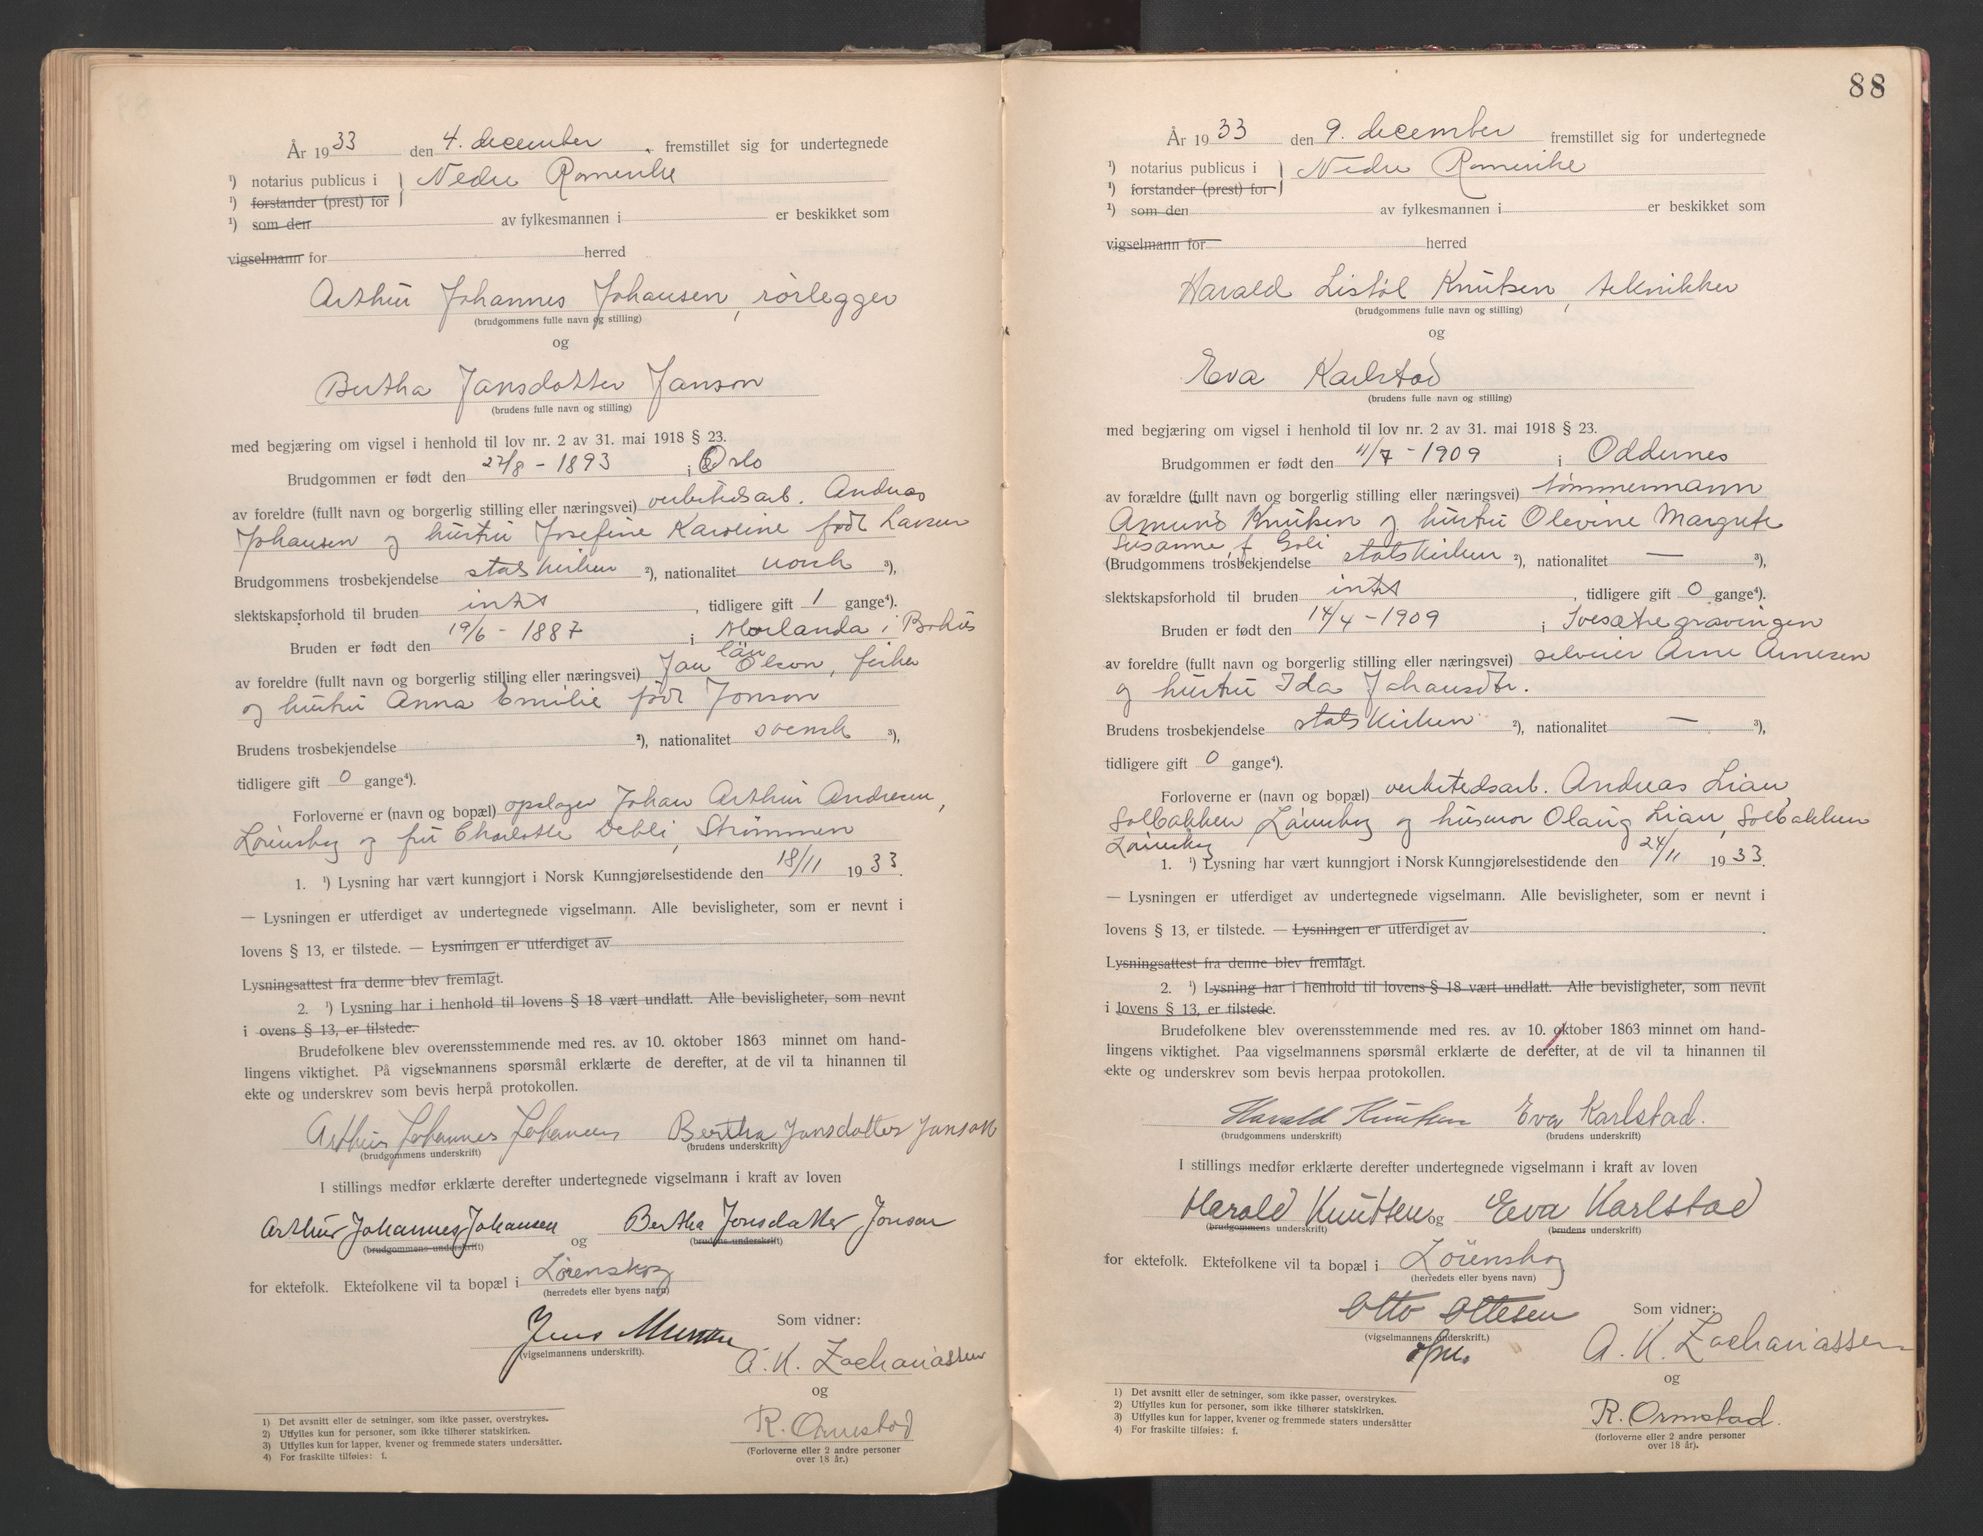 År 1933 den 4. december fremstillet sig for undertegnede
¹) notarius publicus i } Nedre Romerike
¹) forstander (prest) for
¹) som den av fylkesmannen i er beskikket som
vigselmann for herred
Arthur Johannes Johansen, rørlegger
(brudgommens fulle navn og stilling)
og
Bertha Jansdotter Janson
(brudens fulle navn og stilling)
med begjæring om vigsel i henhold til lov nr. 2 av 31. mai 1918 § 23.
Brudgommen er født den 27/8 - 1893 i Oslo
av foreldre (fullt navn og borgerlig stilling eller næringsvei) verkstedsarb. Andreas
Johansen og hustru Josefine Karoline født Larsen
Brudgommens trosbekjendelse statskirken ²), nationalitet norsk ³),
slektskapsforhold til bruden intet, tidligere gift 1 gange⁴).
Bruden er født den 19/6 - 1887 i Morlanda i Bohus
län
av foreldre (fullt navn og borgerlig stilling eller næringsvei) Jan Olson, fisker
og hustru Anna Emilie født Jonson
Brudens trosbekjendelse ²), nationalitet svensk ³),
tidligere gift 0 gange⁴).
Forloverne er (navn og bopæl) opslager Johan Arthur Andresen,
Lørenskog og fru Charlotte Dehli, Strømmen
1. ¹) Lysning har vært kunngjort i Norsk Kunngjørelsestidende den 18/11 1933.
— Lysningen er utferdiget av undertegnede vigselmann. Alle bevisligheter, som er nevnt i
lovens § 13, er tilstede. — Lysningen er utferdiget av
Lysningsattest fra denne blev fremlagt.
2. ¹) Lysning har i henhold til lovens § 18 vært undlatt. Alle bevisligheter, som nevnt
i ovens § 13, er tilstede.
Brudefolkene blev overensstemmende med res. av 10. oktober 1863 minnet om hand-
lingens viktighet. På vigselmannens spørsmål erklærte de derefter, at de vil ta hinannen til
ekte og underskrev som bevis herpå protokollen.
Arthur Johannes Johansen Bertha Jansdotter Janson
(brudgommens underskrift) (brudens underskrift)
I stillings medfør erklærte derefter undertegnede vigselmann i kraft av loven
Arthur Johannes Johansen og Bertha Jonsdatter Jonson
(brudgommens underskrift) (brudens underskrift)
for ektefolk. Ektefolkene vil ta bopæl i Lørenskog
(herredets eller byens navn)
Jens
(vigselmannens underskrift).
Som vidner:
A. K. Zachariassen
og
R. Ormstad
(Forloverne eller 2 andre personer
over 18 år.)
1) Det avsnitt eller de setninger, som ikke passer, overstrykes.
2) Utfylles kun for personer, som ikke tilhører statskirken.
3) Utfylles kun for lapper, kvener og fremmede staters undersåtter.
4) For fraskilte tilføies: f.
88
År 1933 den 9. december fremstillet sig for undertegnede
¹) notarius publicus i } Nedre Romerike
¹) forstander (prest) for
¹) som den av fylkesmannen i er beskikket som
vigselmann for herred
Harald Listøl Knutsen, tekniker
(brudgommens fulle navn og stilling)
og
Eva Karlstad
(brudens fulle navn og stilling)
med begjæring om vigsel i henhold til lov nr. 2 av 31. mai 1918 § 23.
Brudgommen er født den 11/7 - 1909 i Oddernes
av forældre (fullt navn og borgerlig stilling eller næringsvei) tømmermann
Amund Knutsen og hustru Olevine Margrete
Susanne f. Goli
(Brudgommens trosbekjendelse statskirken ²), nationalitet — ³),
slektskapsforhold til bruden intet, tidligere gift 0 gange⁴).
Bruden er født den 14/4 - 1909 i
av foreldre (fullt navn og borgerlig stilling eller næringsvei) selveier Arne Arnesen
og hustru Ida Johansdtr.
Brudens trosbekjendelse statskirken ²), nationalitet — ³),
tidligere gift 0 gange⁴).
Forloverne er (navn og bopæl) verkstedsarb. Andreas Lian
Solbakken Lørenskog og husmor Olaug Lian, Solbakken
Lørenskog
1. ¹) Lysning har vært kunngjort i Norsk Kunngjørelsestidende den 24/11 1933.
— Lysningen er utferdiget av undertegnede vigselmann. Alle bevisligheter, som er nevnt i
lovens § 13, er tilstede. — Lysningen er utferdiget av
Lysningsattest fra denne blev fremlagt.
2. ¹) Lysning har i henhold til lovens § 18 vært undlatt. Alle bevisligheter, som nevnt
i lovens § 13, er tilstede.
Brudefolkene blev overensstemmende med res. av 10. oktober 1863 minnet om hand-
lingens viktighet. Paa vigselmannens spørsmål erklærte de derefter, at de vil ta hinannen til
ekte og underskrev som bevis herpaa protokollen.
Harald Knutsen Eva Karlstad.
(brudgommens underskrift) (brudens underskrift)
I stillings medfør erklærte derefter undertegnede vigselmann i kraft av loven
Harald Knutsen og Eva Karlstad
(brudgommens underskrift) (brudens underskrift)
for ektefolk. Ektefolkene vil ta bopæl i Lørenskog
(herredets eller byens navn)
Otto Ottesen
(vigselmannens underskrift.)
Som vidner:
A. K. Zachariassen
og
R. Ormstad.
(forloverne eller 2 andre personer
over 18 år).
1) Det avsnitt eller de setninger, som ikke passer, overstrykes.
2) Utfylles kun for personer, som ikke tilhører statskirken.
3) Utfylles kun for lapper, kvener og fremmede staters undersåtter
4) For fraskilte tilføies: f.